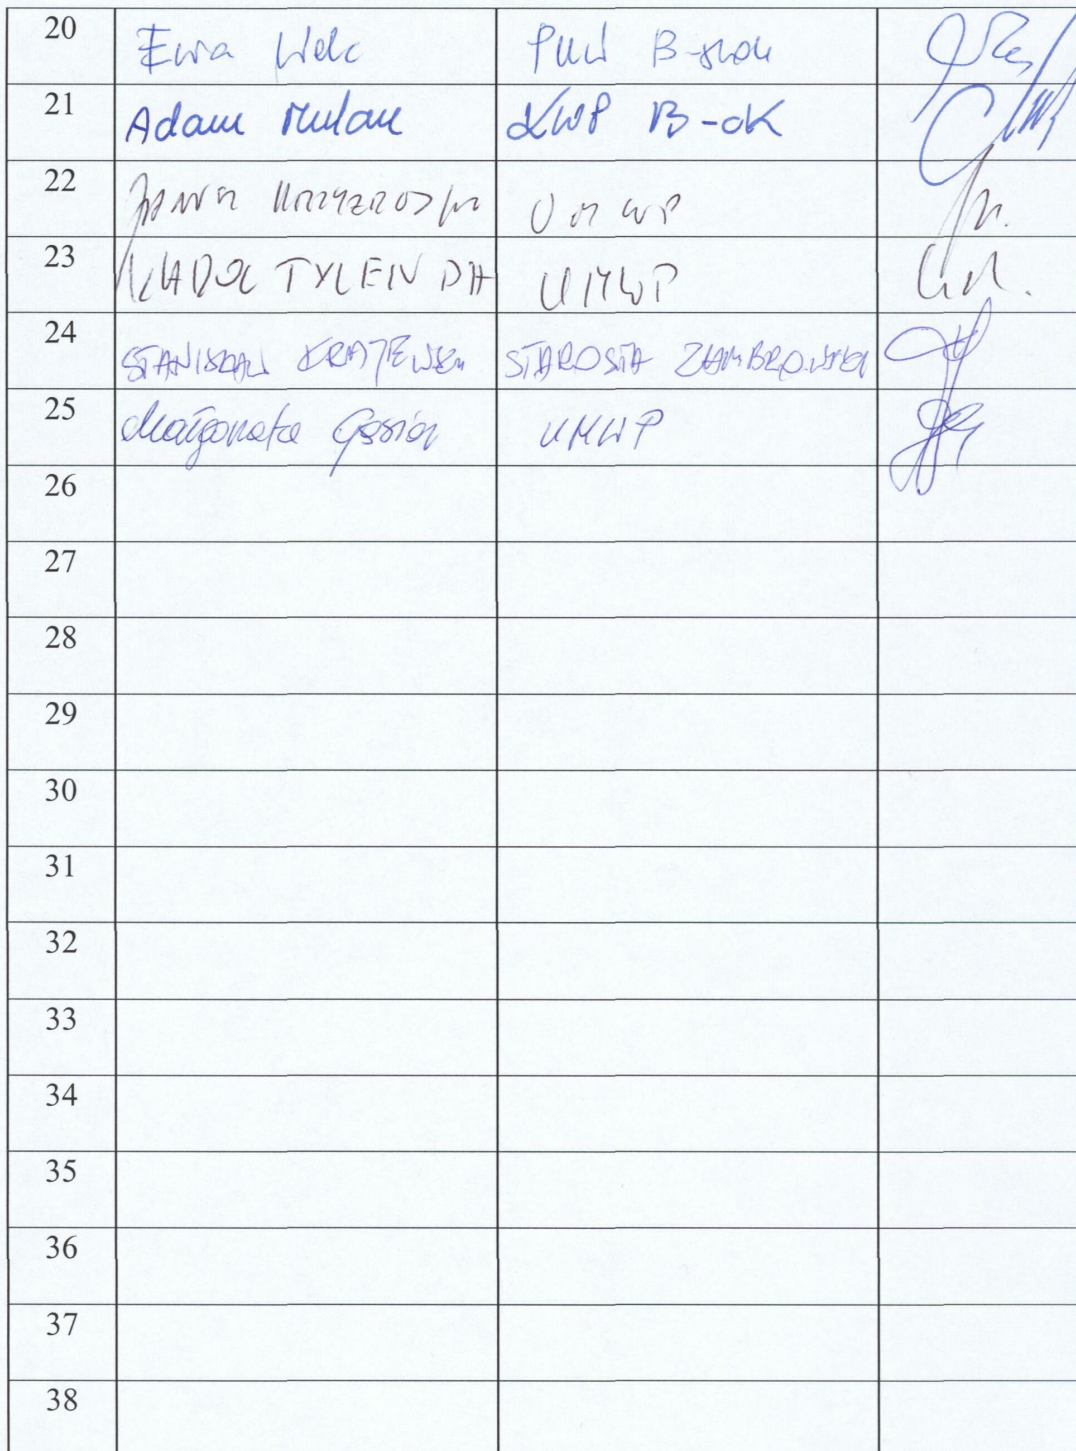 20 Ewa Welc B-stok
21 Adam Mulau KWP B-ok
22 UMWP
23 KAROL TYLENDA UMWP
24 STANISŁAW KRAJEWSKI STAROSTA ZAMBROWSKI
25 Małgorzata Gąsior UMWP
26
27
28
29
30
31
32
33
34
35
36
37
38